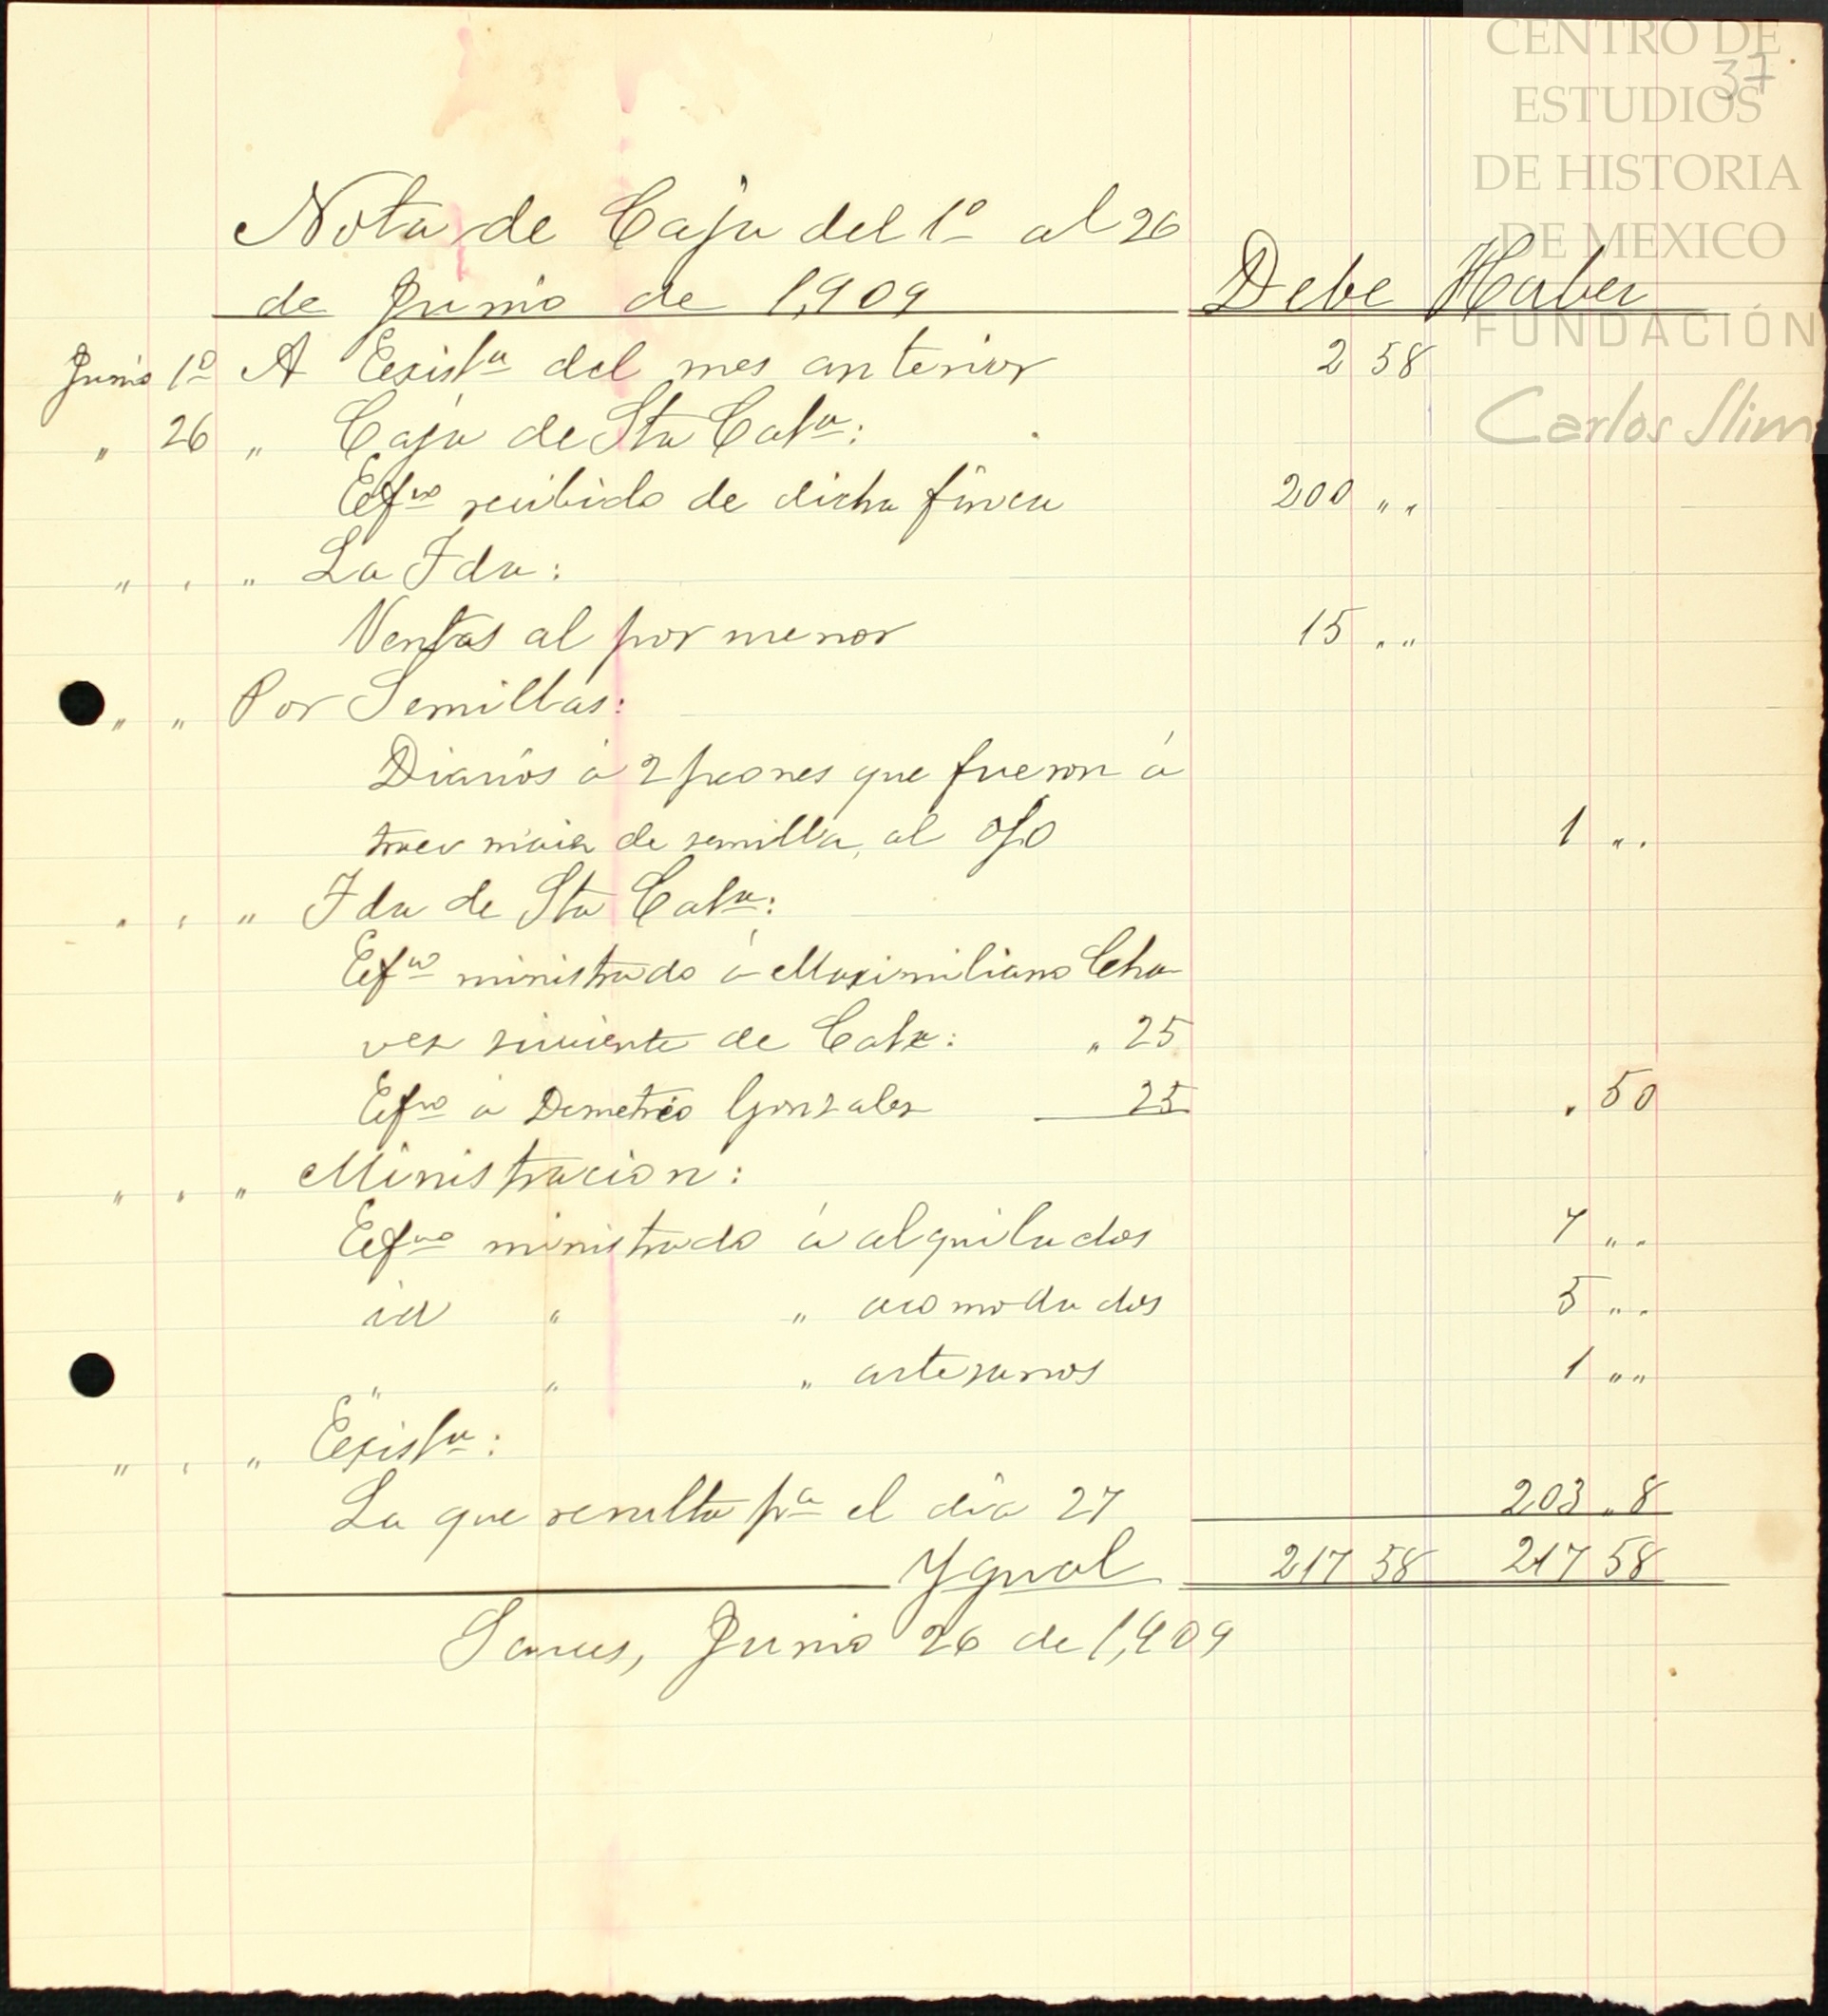 CENTRO DE
ESTUDIOS
DE HISTORIA
DE MEXICO
FUNDACIÓN
Carlos Slim
37
Nota de Caja del 1º al 26
de Junio de 1,909 Debe Haber
Junio 1º A Exista del mes anterior 2 58
" 26 " Caja de Sta Cata:
Efvo recibido de dicha finca 200 " "
" " " La Fda:
Ventas al por menor 15 " "
" " Por Semillas:
Diarios á 2 peones que fueron á
traer maiz de semilla, al Ojo 1 " "
" " " Fda de Sta Cata:
Efvo ministrado á Maximiliano Cha-
vez sirviente de Cata: " 25
Efvo á Demetrio Gonzalez 25 " 50
" " " Ministracion:
Efvo ministrado á alquilados 7 " "
id " " acomodados 5 " "
" " " artesanos 1 " "
" " " Exista:
La que resulta pa el dia 27 203 " 8
Ygual 217 58 217 58
Sauces, Junio 26 de 1,909